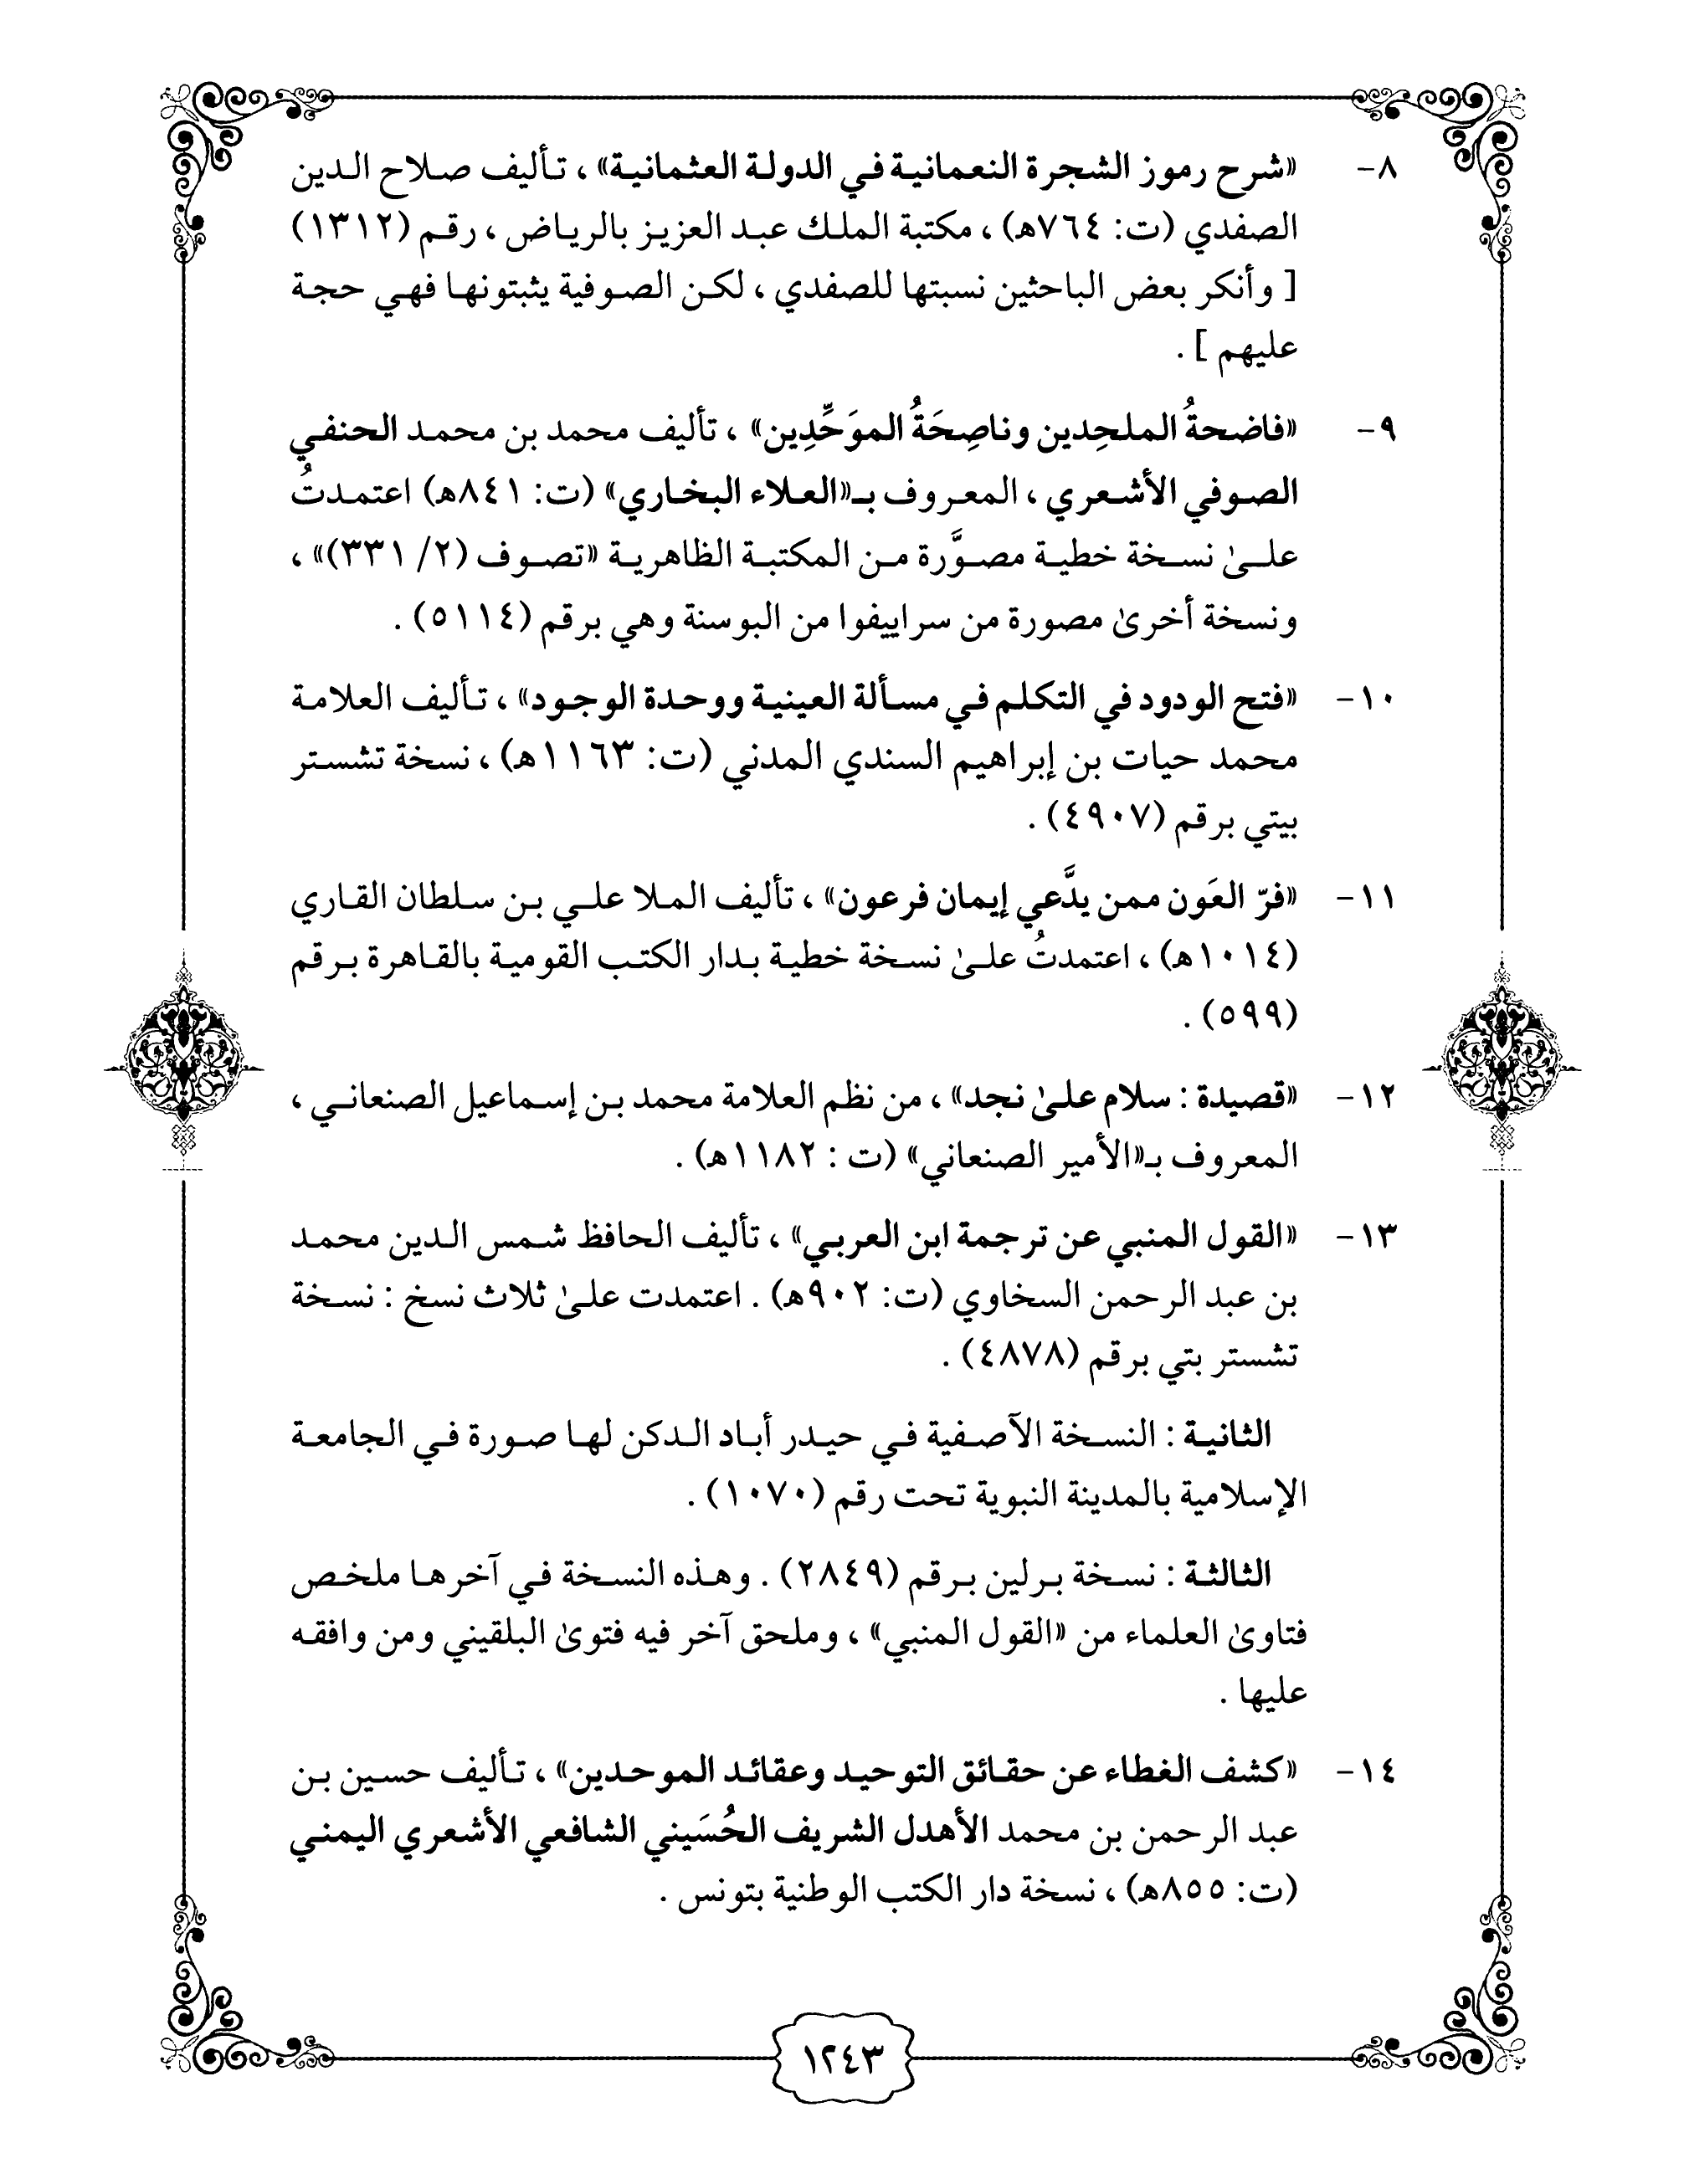 ٨- «شرح رموز الشجرة النعمانية في الدولة العثمانية» ، تأليف صلاح الدين
الصفدي (ت: ٧٦٤هـ) ، مكتبة الملك عبد العزيز بالرياض ، رقم (١٣١٢)
[ وأنكر بعض الباحثين نسبتها للصفدي ، لكن الصوفية يثبتونها فهي حجة
عليهم ] .
٩- «فاضحةُ الملحِدين وناصِحَةُ الموَحِّدِين» ، تأليف محمد بن محمد الحنفي
الصوفي الأشعري ، المعروف بـ«العلاء البخاري» (ت: ٨٤١هـ) اعتمدتُ
علىٰ نسخة خطية مصوَّرة من المكتبة الظاهرية «تصوف (٢/ ٣٣١)» ،
ونسخة أخرىٰ مصورة من سراييفوا من البوسنة وهي برقم (٥١١٤) .
١٠- «فتح الودود في التكلم في مسألة العينية ووحدة الوجود» ، تأليف العلامة
محمد حيات بن إبراهيم السندي المدني (ت: ١١٦٣هـ) ، نسخة تشستر
بيتي برقم (٤٩٠٧) .
١١- «فرّ العَون ممن يدَّعي إيمان فرعون» ، تأليف الملا علي بن سلطان القاري
(١٠١٤هـ) ، اعتمدتُ علىٰ نسخة خطية بدار الكتب القومية بالقاهرة برقم
(٥٩٩) .
١٢- «قصيدة : سلام علىٰ نجد» ، من نظم العلامة محمد بن إسماعيل الصنعاني ،
المعروف بـ«الأمير الصنعاني» (ت : ١١٨٢هـ) .
١٣- «القول المنبي عن ترجمة ابن العربي» ، تأليف الحافظ شمس الدين محمد
بن عبد الرحمن السخاوي (ت: ٩٠٢هـ) . اعتمدت علىٰ ثلاث نسخ : نسخة
تشستر بتي برقم (٤٨٧٨) .
الثانية : النسخة الآصفية في حيدر أباد الدكن لها صورة في الجامعة
الإسلامية بالمدينة النبوية تحت رقم (١٠٧٠) .
الثالثة : نسخة برلين برقم (٢٨٤٩) . وهذه النسخة في آخرها ملخص
فتاوىٰ العلماء من «القول المنبي» ، وملحق آخر فيه فتوىٰ البلقيني ومن وافقه
عليها .
١٤- «كشف الغطاء عن حقائق التوحيد وعقائد الموحدين» ، تأليف حسين بن
عبد الرحمن بن محمد الأهدل الشريف الحُسَيني الشافعي الأشعري اليمني
(ت: ٨٥٥هـ) ، نسخة دار الكتب الوطنية بتونس .
١٢٤٣